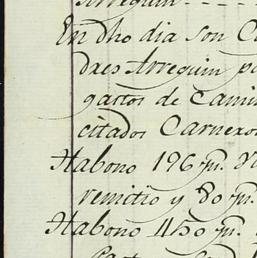 Arreguin - - - -
En dho dia son C
dres Arreguin p
gastos de Cami
citados Carnero
Habono 196 ps.
remitio y 80 ps.
Habono 450 ps.